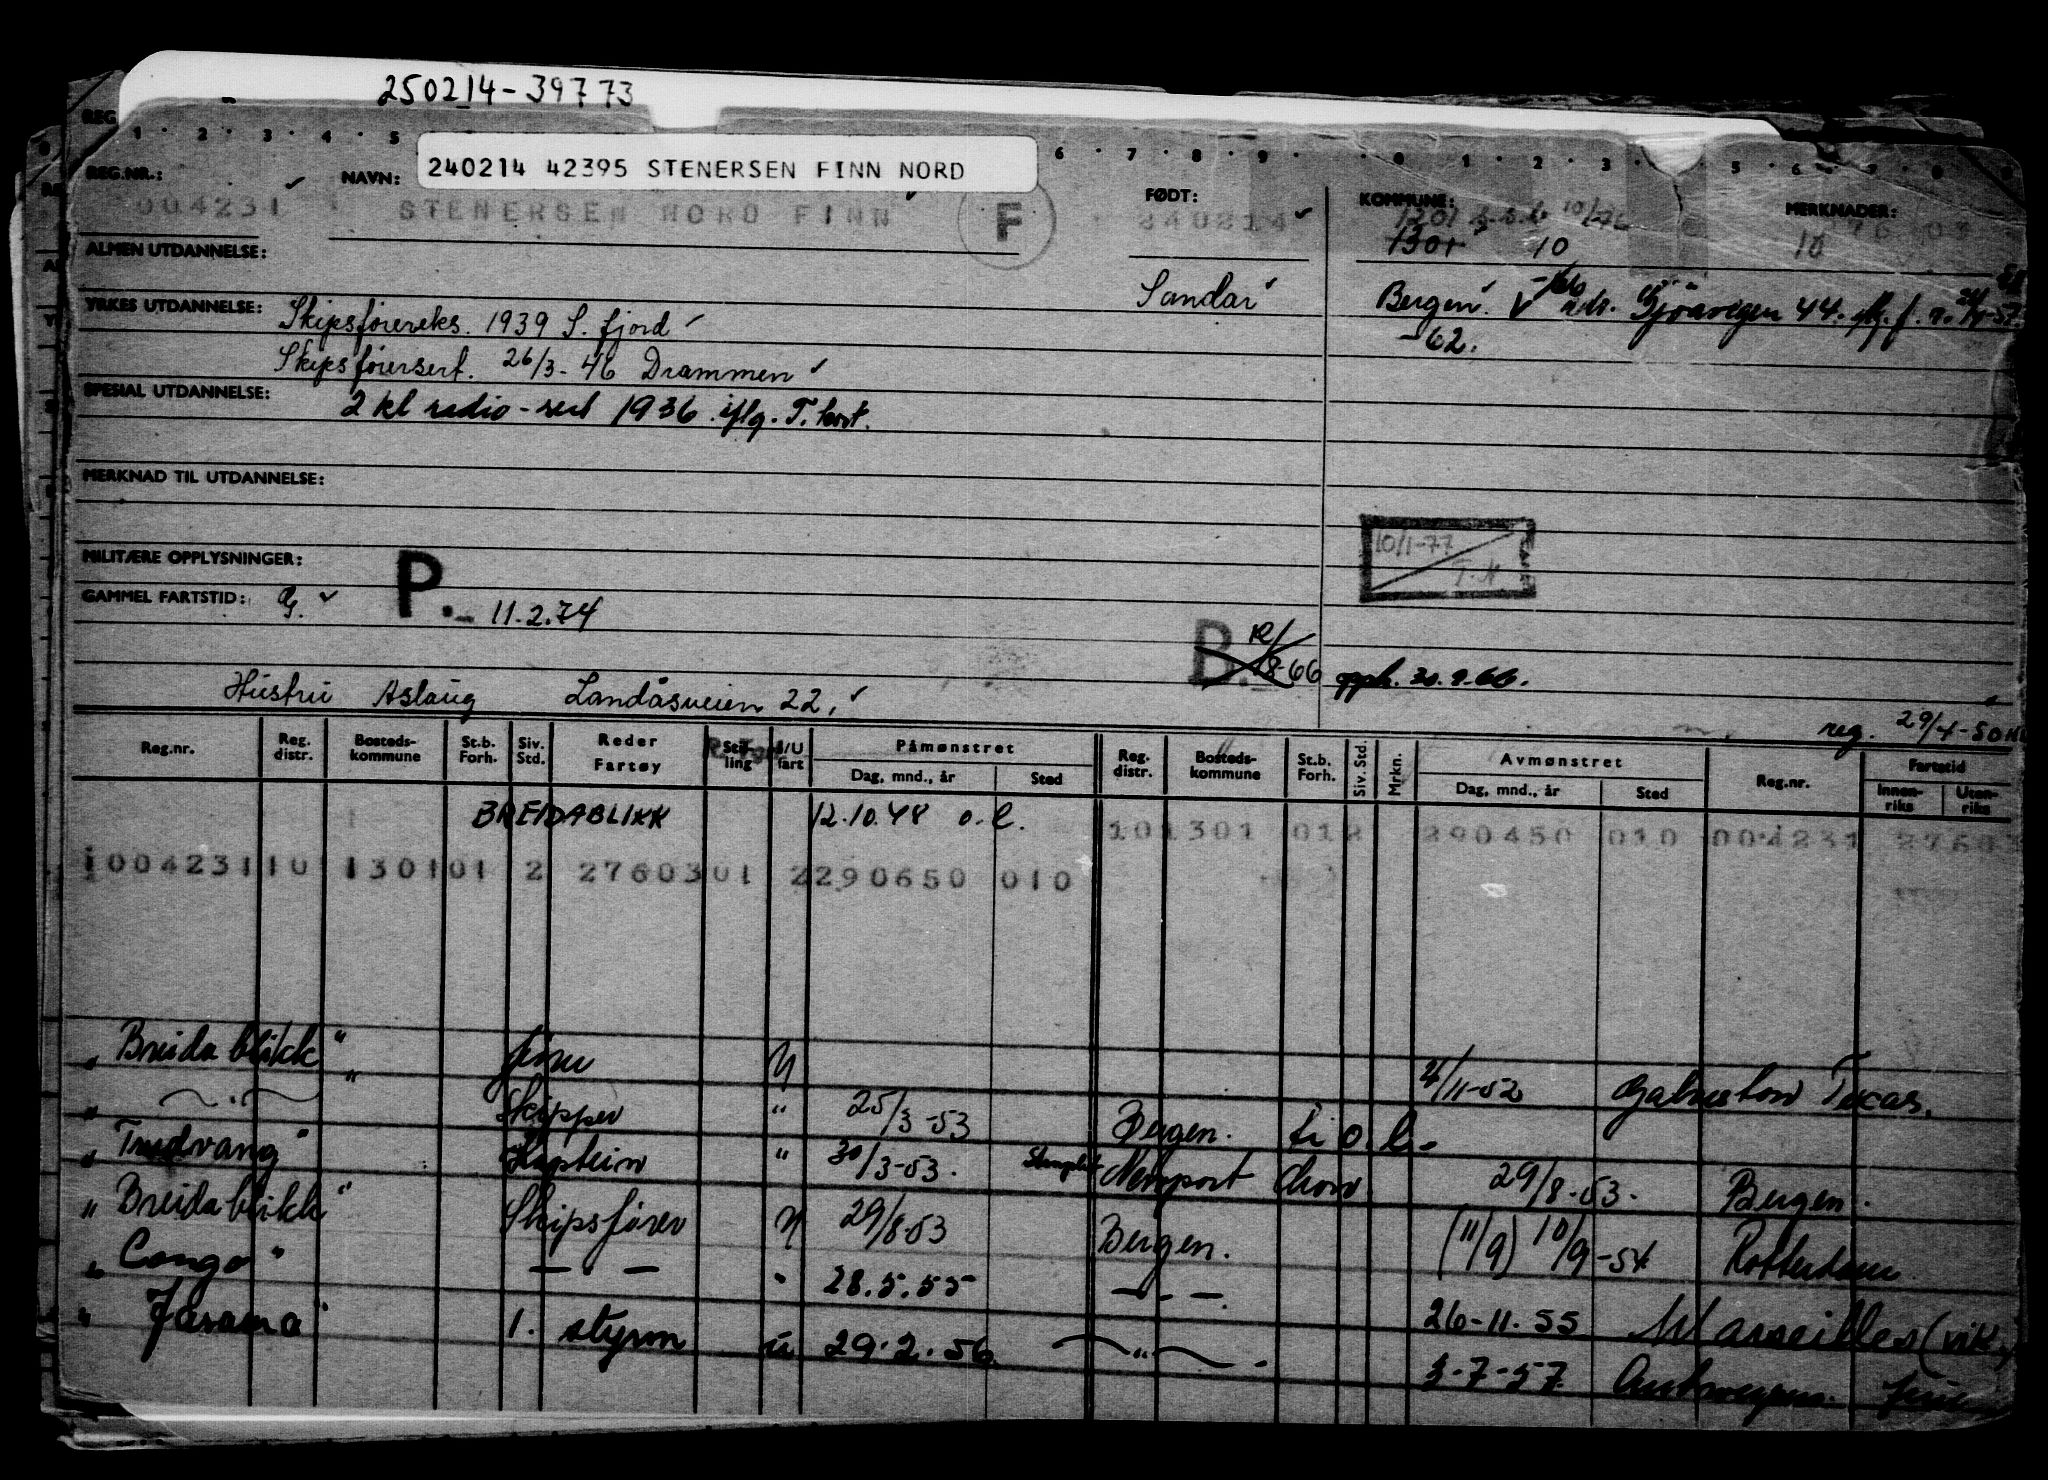 250214-39773
240214 42395 STENERSEN FINN NORD
REG
1 · 2 · 3 · 4 · 5 6 · 7 · 8 · 9 · 0 1 · 2 · 3 · 5 6 7 8
REG.NR.: NAVN: FØDT: KOMMUNE: MERKNADER:
004231 STENERSEN NORD FINN F 240214 1301 10
ALMEN UTDANNELSE: Sandar Bergen -62.
YRKES UTDANNELSE: Skipsførereks. 1939 S. fjord
Skipsførersert. 26/3-46 Drammen
SPESIAL UTDANNELSE: 2 kl radio-sert 1936 iflg. T. kort.
MERKNAD TIL UTDANNELSE:
10/1-77
MILITÆRE OPPLYSNINGER: P.
GAMMEL FARTSTID: G. 11.2.74
B. opph. 30.9.66.
Hustru Aslaug Landåsveien 22.
reg. 29/4-50
Reg.nr. Reg. distr. Bosteds-kommune St.b. Forh. Siv. Std. Reder Fartøy Stilling I/U fart Påmønstret Dag, mnd., år Sted Reg. distr. Bosteds-kommune St.b. Forh. Siv. Std. Mrkn. Avmønstret Dag, mnd., år Sted Reg.nr. Fartstid Innenriks Utenriks
BREIDABLIKK 12.10.48 o.l. 101301 012 290450 010 004231 27603
100423110 130101 2 2760301 2290650 010
" Breidablikk " 4/11-52 Galveston Texas.
" Skipper " 25/3-53 Bergen.
" Trudvang " Kaptein " 30/3-53. Newport 29/8-53. Bergen.
" Breidablikk " Skipsfører 29/8-53 Bergen. (11/9) 10/9-54 Rotterdam
" Congo " — . — " 28.5.55 — . — . 26-11-55 Marseilles (vik.)
" Jarama " 1. styrm u 29.2.56 " 3-7-57 Antwerpen. ferie